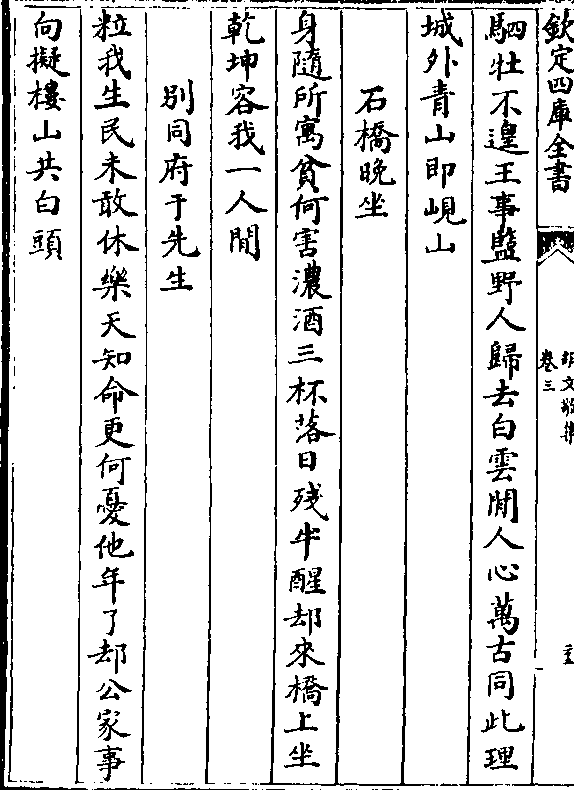 欽定四庫全書
胡文敬集
卷三
駟牡不遑王事盬野人歸去白雲閒人心萬古同此理
城外青山即峴山
石橋晚坐
身隨所寓貧何害濃酒三杯落日殘半醒却來橋上坐
乾坤容我一人閒
别同府于先生
粒我生民未敢休樂天知命更何憂他年了却公家事
向擬樓山共白頭